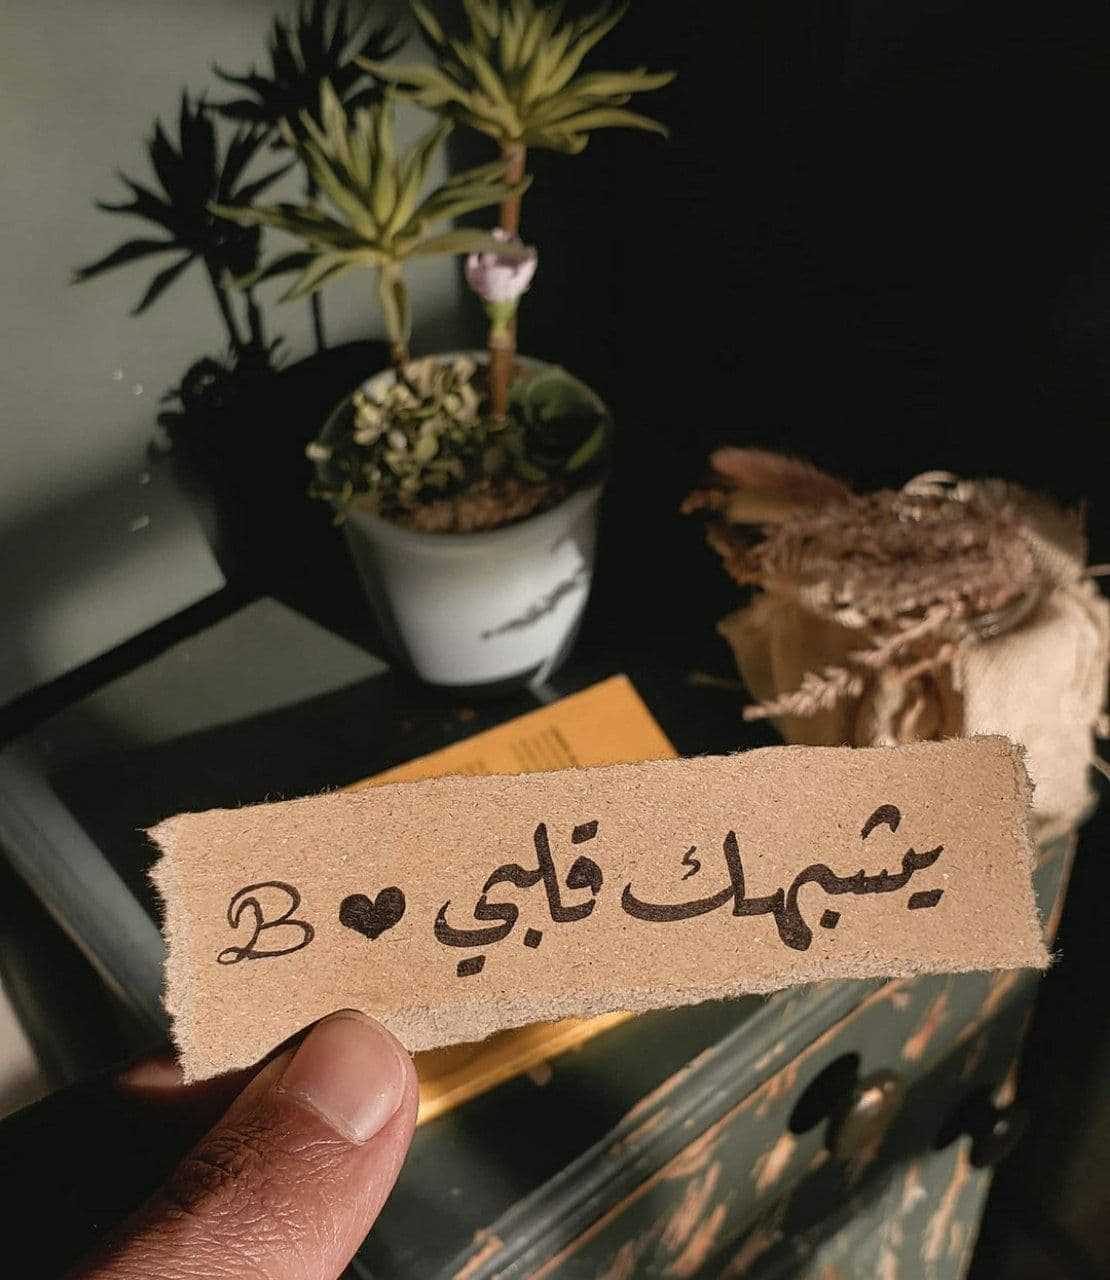 يشبهك قلبي ♥ B